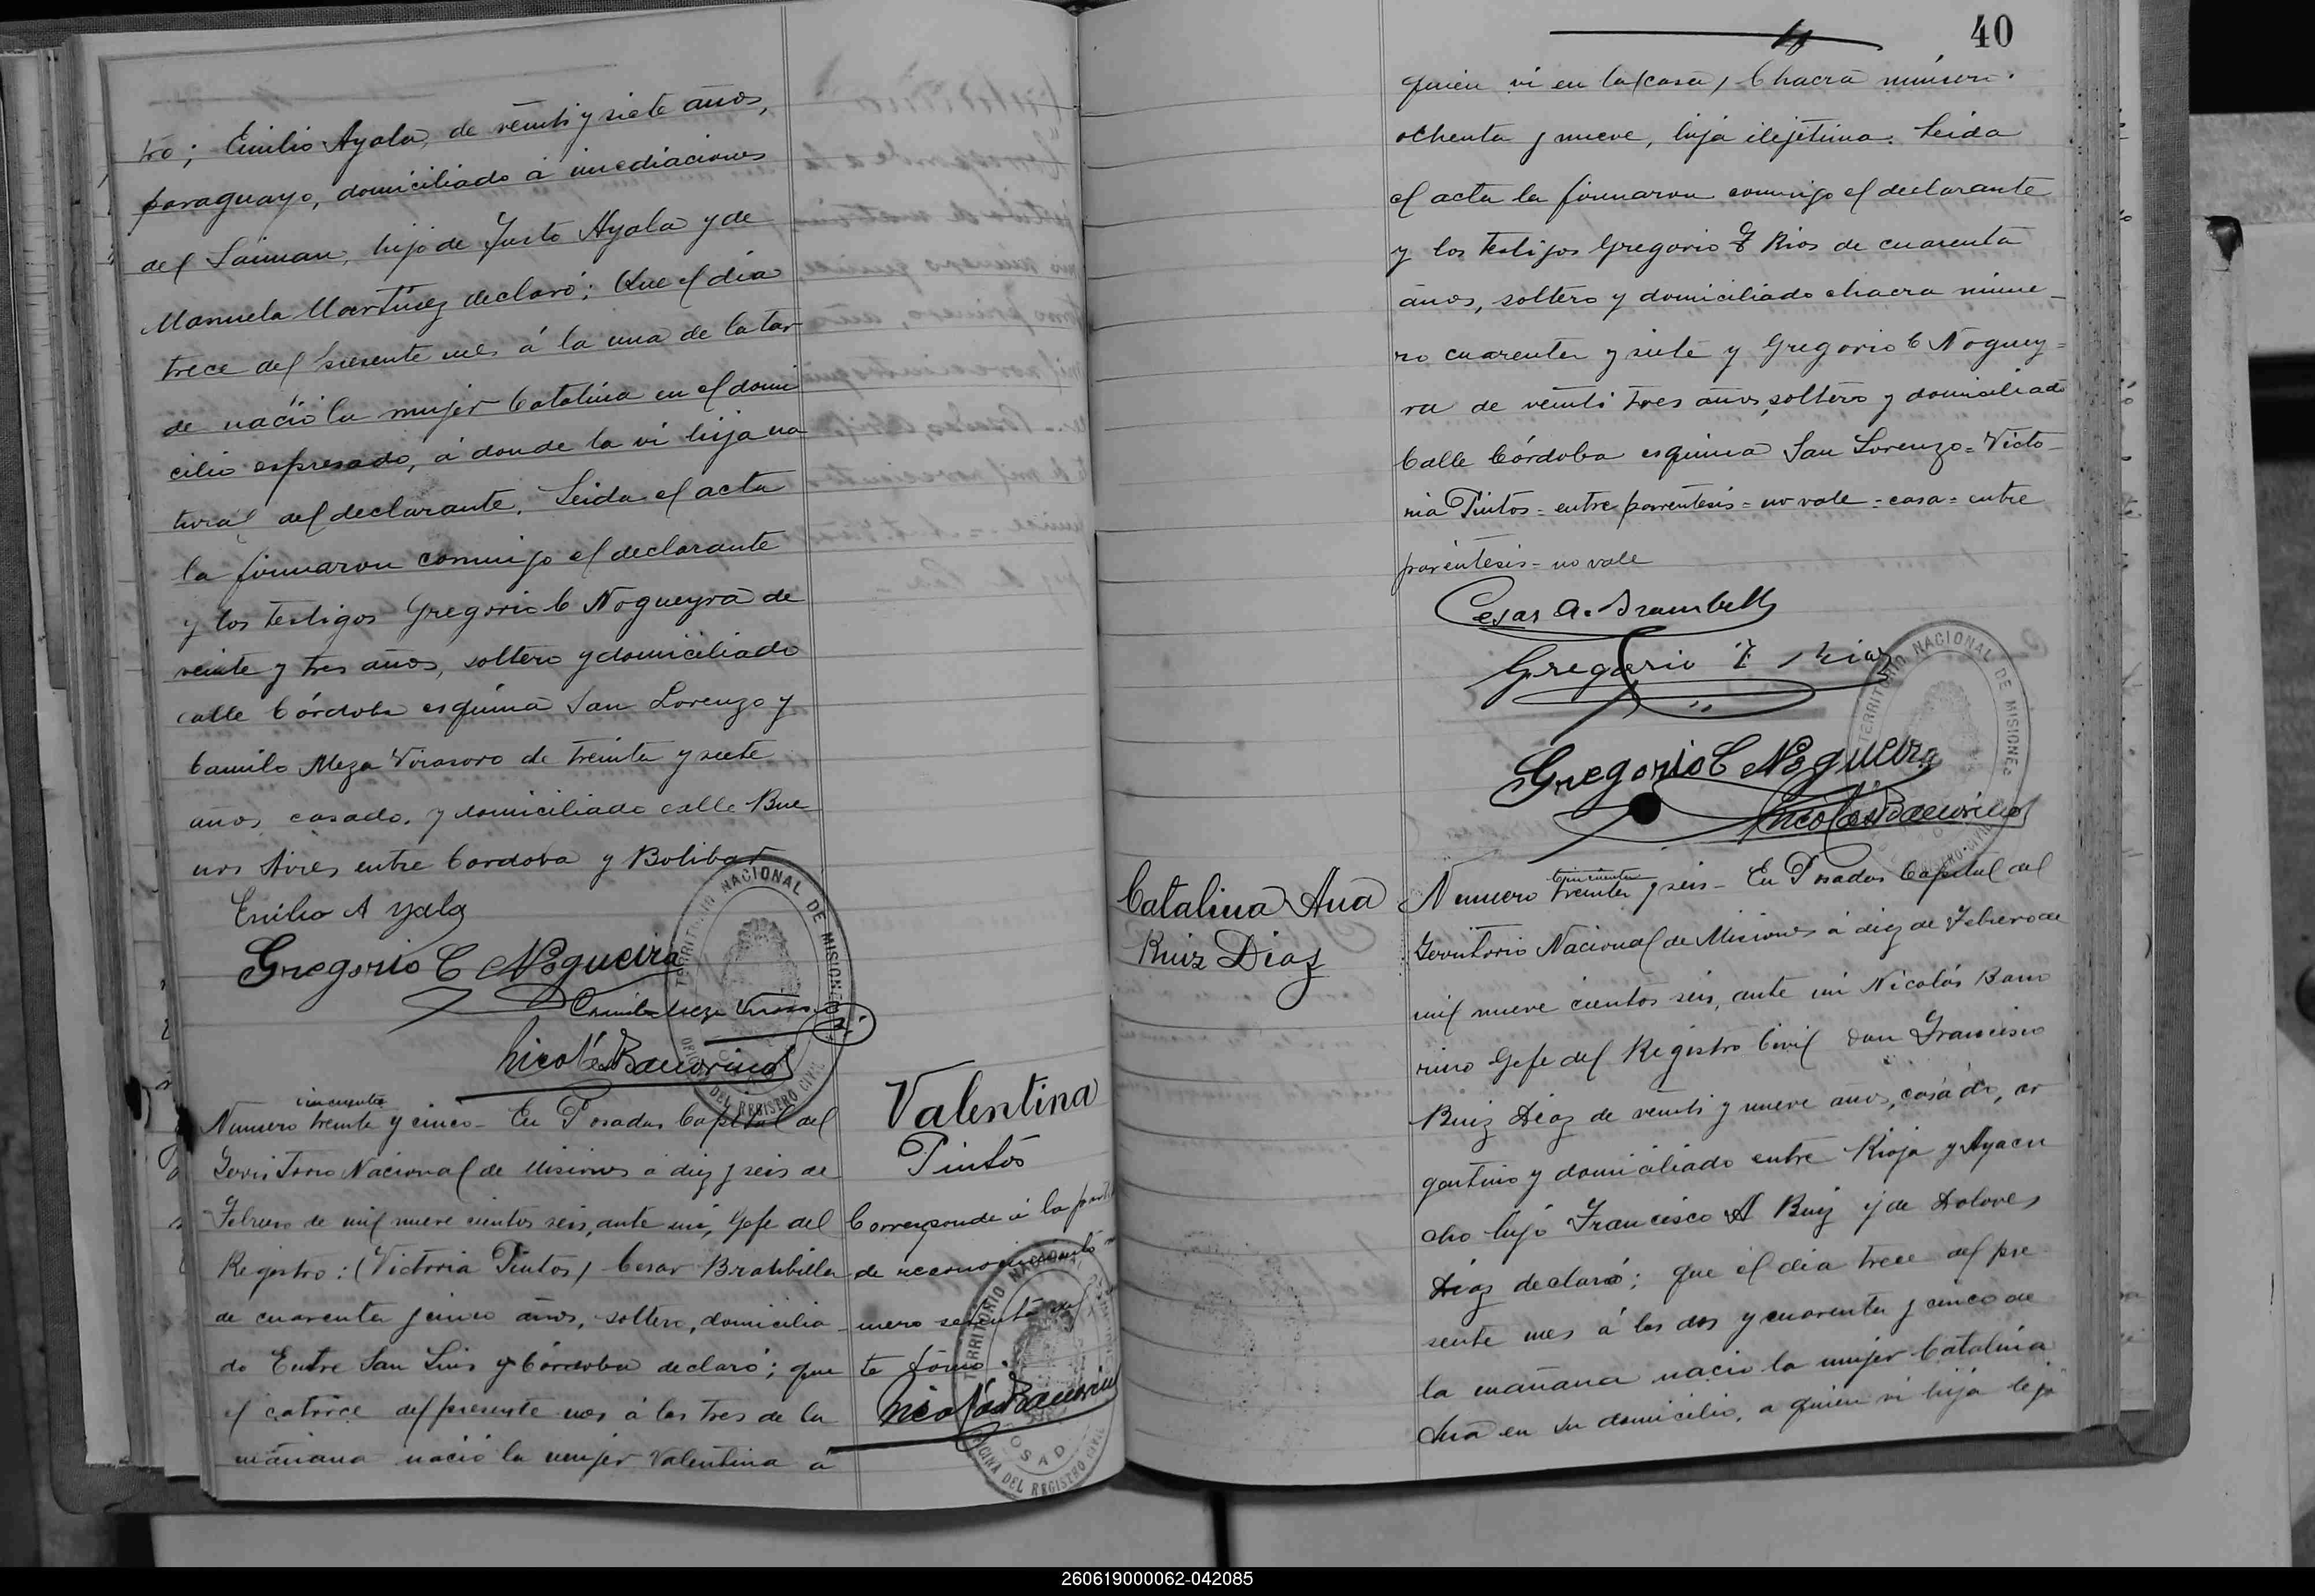 tro; Emilio Ayala, de veinti y siete años,
paraguayo, domiciliado á imediaciones
del Zaiman, hijo de Justo Ayala y de
Manuela Martinez declaró; Que el dia
trece del presente mes á la una de la tar
de nació la mujer Catalina en el domi
cilio espresado, á donde la vi hija na
tural del declarante. Leida el acta
la firmaron conmigo el declarante
y los testigos Gregorio C Nogueyra de
veinte y tres años, soltero y domiciliado
calle Córdoba esquina San Lorenzo y
Camilo Meza Virasoro de treinta y siete
años casado, y domiciliado calle Bue
nos Aires entre Cordoba y Bolibar
Emilio Ayala
Gregorio C Nogueira
Camilo Meza Virasoro
Nicolás Baunorino
TERRITORIO NACIONAL DE MISIONES
OFICINA DEL REGISTRO CIVIL
cincuenta
Numero treinta y cinco - En Posadas Capital del
Territorio Nacional de Misiones a diez y seis de
Febrero de mil nueve cientos seis, ante mi, Gefe del
Registro: (Victoria Pintos) Cesar Brambilla
de cuarenta y cinco años, soltero, domicilia
do Entre San Luis y Córdoba declaró; que
el catorce del presente mes á las tres de la
mañana nació la mujer Valentina á
Valentina
Pintos
Corresponde á la
de reconocimiento
mero
te tomo.
Nicolás Baunorino
TERRITORIO NACIONAL
OFICINA DEL REGISTRO CIVIL
POSADAS
40
quien vi en la (casa) Chacra número
ochenta y nueve, hija ilejetima. Leida
el acta la firmaron conmigo el declarante
y los testigos Gregorio F Rios de cuarenta
años, soltero y domiciliado chacra núme_
ro cuarenta y siete y Gregorio C Noguey=
ra de veinti tres años, soltero y domiciliado
Calle Córdoba esquina San Lorenzo = Victo-
ria Pintos = entre parentesis = no vale = casa = entre
paréntesis = no vale
Cesar A. Brambilla
Gregorio F Rios
Gregorio C Nogueira
Nicolás Baunorino
TERRITORIO NACIONAL DE MISIONES
REGISTRO CIVIL
Catalina Ana
Ruiz Diaz
cincuenta
Numero treinta y seis - En Posadas Capital del
Territorio Nacional de Misiones á diez de Febrero de
mil nueve cientos seis, ante mi Nicolás Baun
rino Gefe del Registro Civil Don Francisco
Ruiz Diaz de veinti y nueve años, casado, ar
gentino y domiciliado entre Rioja y Ayacu
cho hijo Francisco A Ruiz y de Dolores
Diaz declaró; que el dia trece del pre
sente mes á las dos y cuarenta y cinco de
la mañana nació la mujer Catalina
Ana en su domicilio, a quien vi hija leji
260619000062-042085